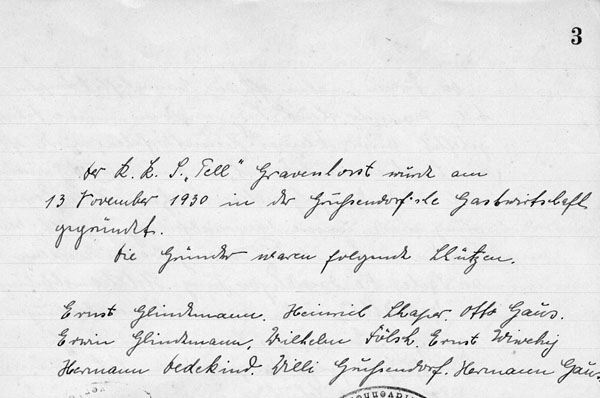 3
Der K. K. S. „Tell“ Gravenhorst wurde am
13 November 1930 in der Gastwirtschaft
gegründet.
Die Gründer waren folgende Schützen.
Ernst Glindemann. Heinrich Schaper. Otto Gaus.
Erwin Glindemann. Wilhelm Fölsch. Ernst
Hermann Oedekind. Willi Hermann Gaus.